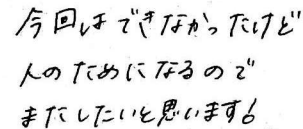 今回はできなかったけど
人のためになるので
またしたいと思います。